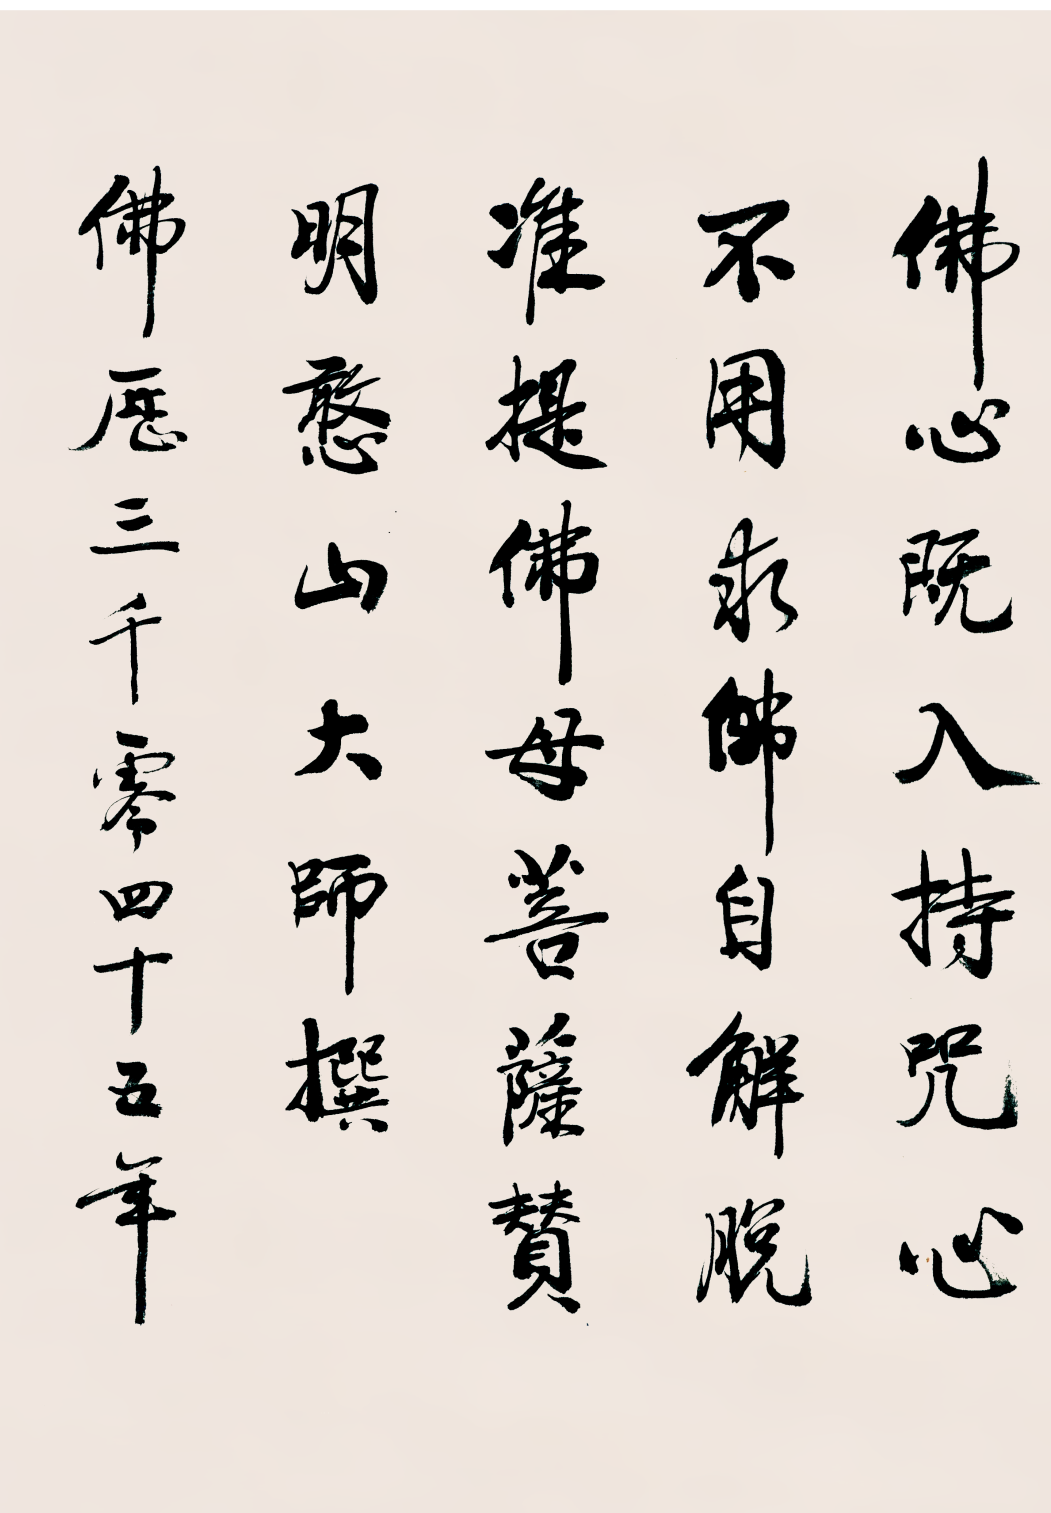 佛心既入持咒心
不用求佛自解脫
准提佛母菩薩贊
明憨山大師撰
佛歷三千零四十五年